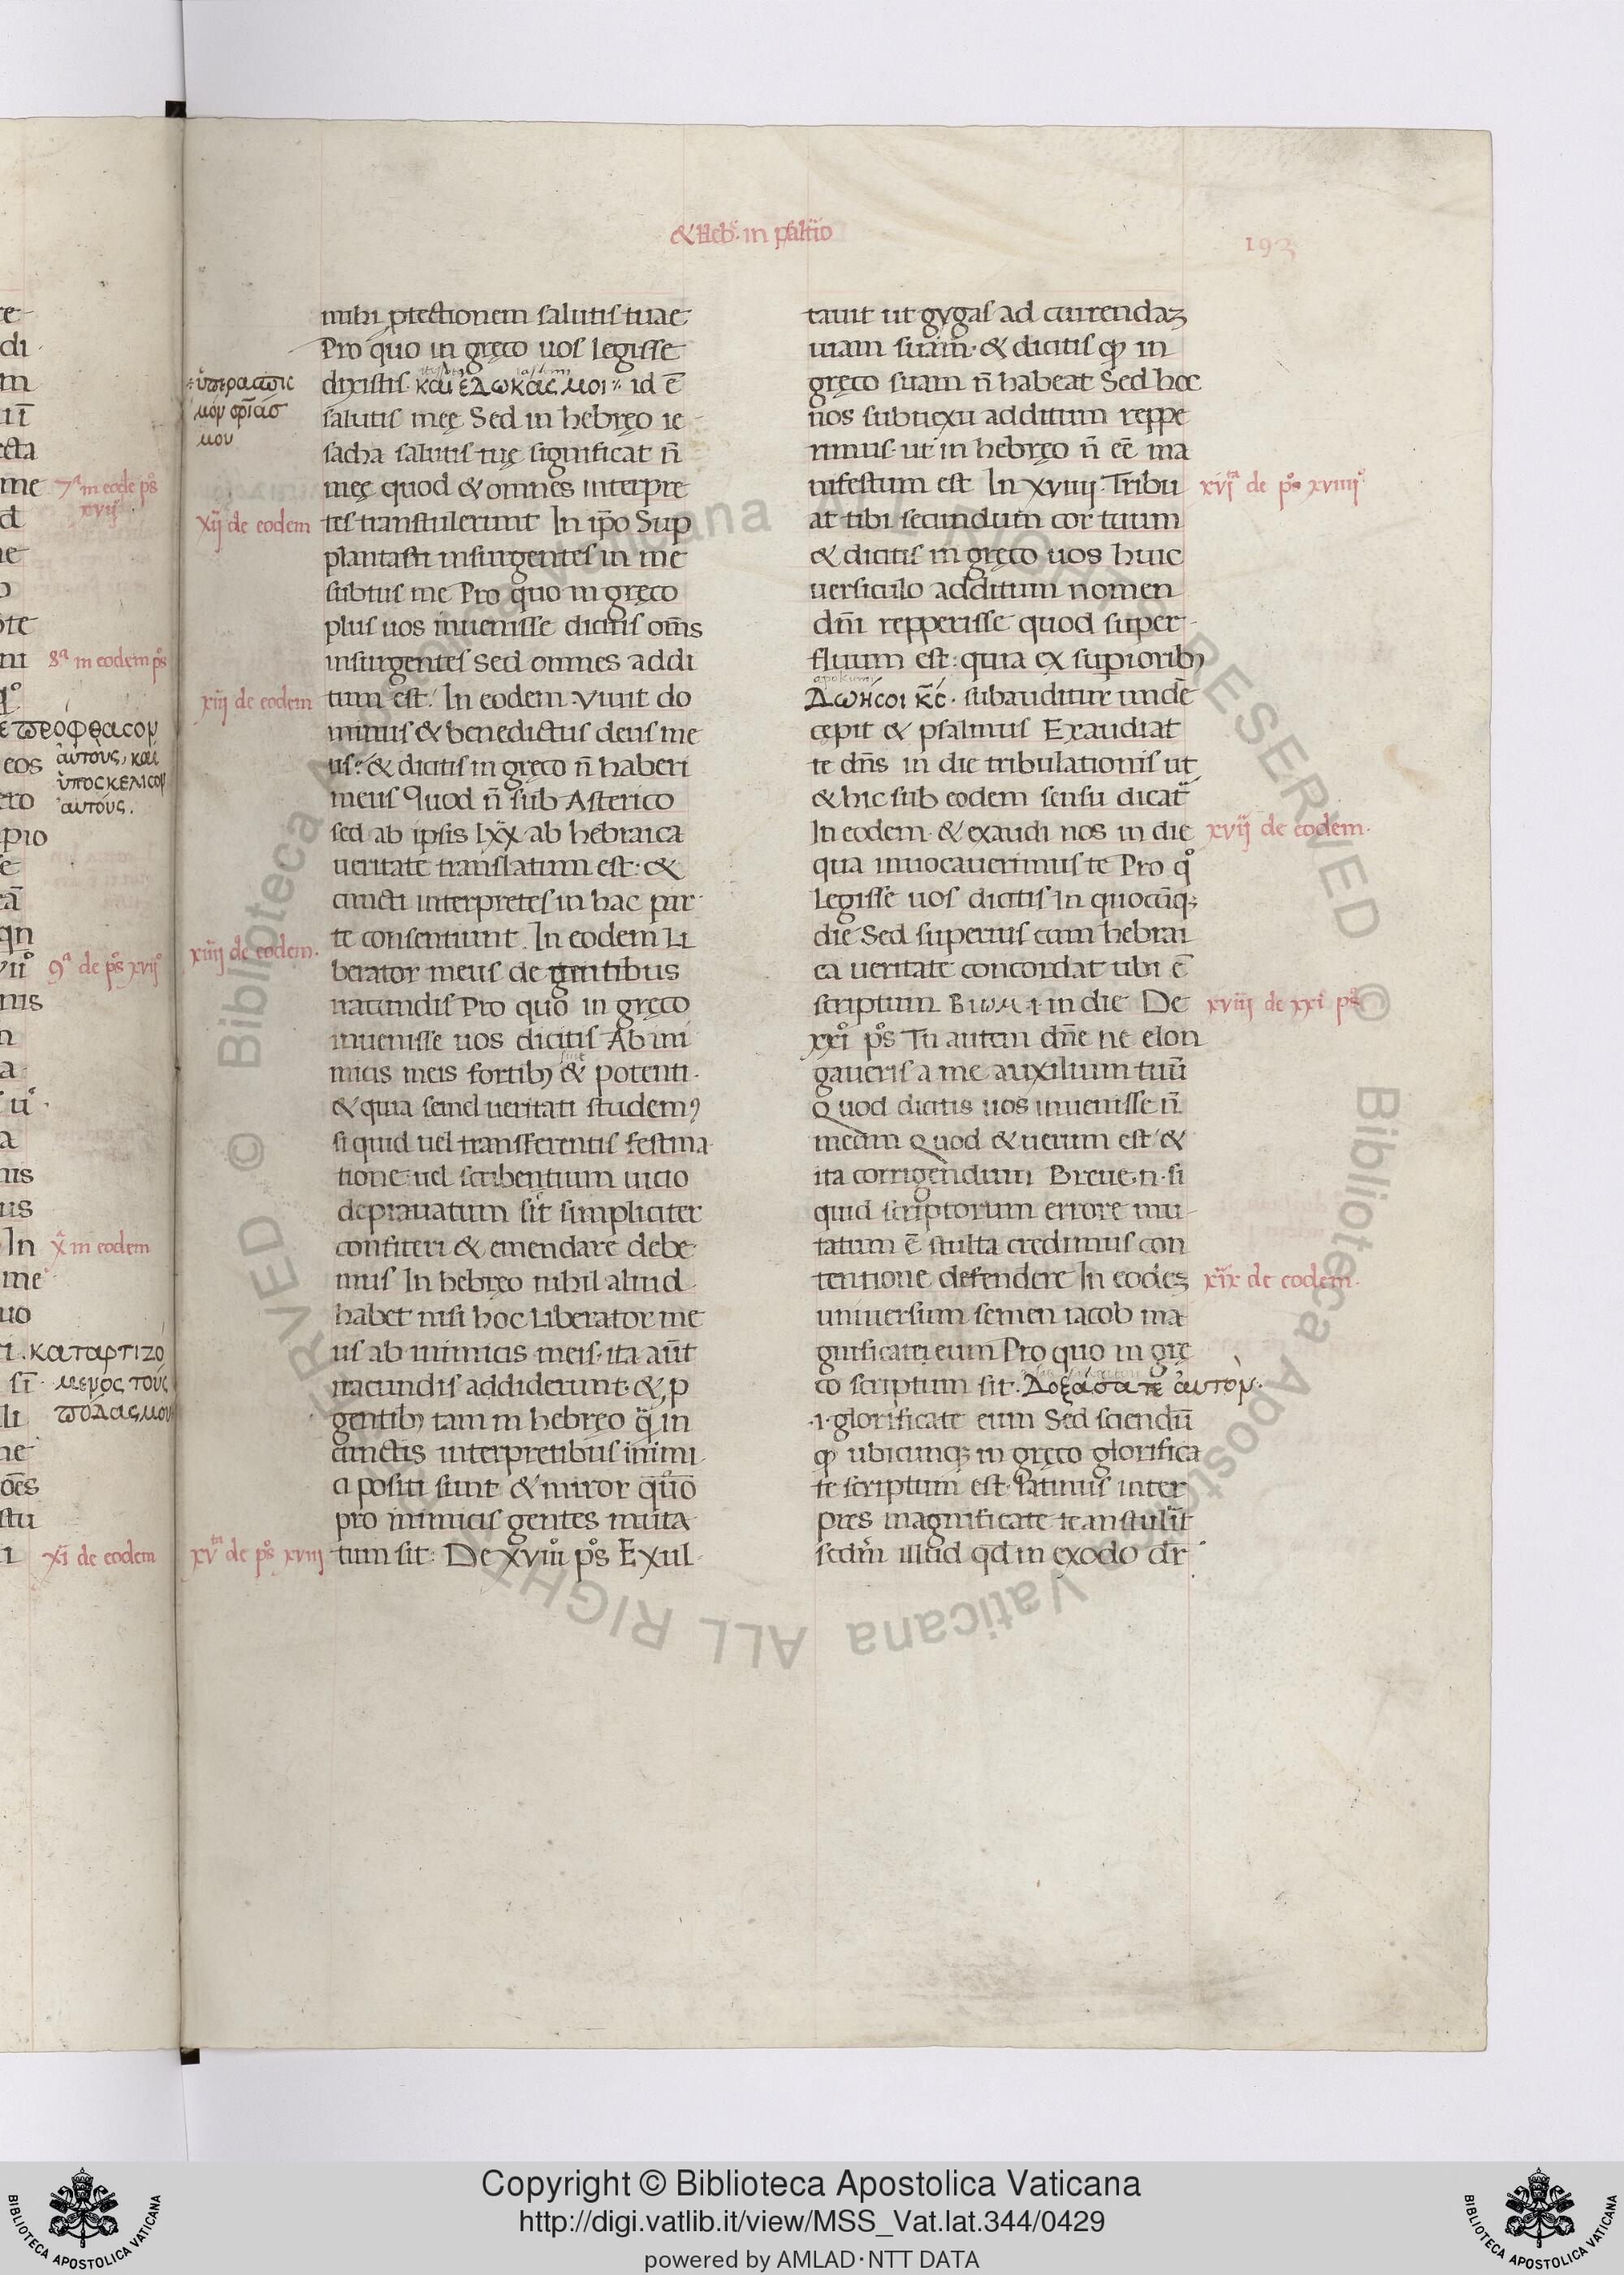 & Heb̃. in psalt̃io
193
mihi ꝓtectionem salutis tuae
Pro quo in gręco uos legisse
dixistis. και εΔωκας μοι id ē
salutis meę Sed in hebręo ie
sacha salutis tuę significat n̄
meę quod & omnes interpre
tes transtulerunt In ip̄o Sup
plantasti insurgentes in me
subtus me Pro quo in gręco
plus uos inuenisse dicitis om̄s
insurgentes Sed omnes addi
tum est. In eodem. Viuit do
minus & benedictus deus me
us. & dicitis in gręco n̄ haberi
meus Quod n̄ sub Asterico
sed ab ipsis lxx ab hebraica
ueritate translatum est. &
cuncti interpretes in hac par
te consentiunt. In eodem Li
berator meus de gentibus
iracundis Pro quo in gręco
inuenisse uos dicitis Ab ini
micis meis fortib; & potenti.
& quia semel ueritati studem᾽
si quid uel transferentis festina
tione uel scribentium uicio
deprauatum sit simpliciter
confiteri & emendare debe
mus In hebręo nihil aliud
habet nisi hoc Liberator me
us ab inimicis meis. ita aūt
iracundis addiderunt. & ꝓ
gentib; tam in hebręo q̄ in
cunctis interpretibus inimi
ci positi sunt & miror quōo
pro inimicis gentes muta
tum sit. De xviii° ps̄ Exul
tauit ut gygas ad currendaz
uiam suam. & dicitis qꝫ in
gręco suam n̄ habeat Sed hoc
nos sub ueru additum reppe
rimus. ut in hebręo n̄ eē ma
nifestum est In xviiii. Tribu
at tibi secundum cor tuum
& dicitis in gręco uos huic
uersiculo additum nomen
dn̄i repperisse quod super
fluum est. quia ex supiorib;
Δωησοι κ̄ς. subauditur unde
cepit & psalmus Exaudiat
te dn̄s in die tribulationis ut
& hic sub eodem sensu dicat̃
In eodem. & exaudi nos in die
qua inuocauerimus te Pro q°
Legisse uos dicitis In quocūq;
die Sed superius cum hebrai
ca ueritate concordat ubi ē
scriptum BIωM .i. in die De
xxi° ps̄ Tu autem dn̄e ne elon
gaueris a me auxilium tuū
Quod dicitis uos inuenisse n̄
meum Quod & uerum est &
ita corrigendum Breue .n. si
quid scriptorum errore mu
tatum ē stulta credimus con
tentione defendere In eodez
uniuersum semen iacob ma
gnificate eum Pro quo in grę
co scriptum sit. Δοξασατε αυτον.
.i. glorificate eum Sed sciendū
qꝫ ubicunq; in gręco glorifica
te scriptum est. Latinus inter
pres magnificate transtulit
secdm̄ illud qd̄ in exodo dr̄
xij de eodem
xiij de eodem
xiiij de eodem.
xvᵗᵃ de ps̄ xviij
xviᵗᵃ de ps̄ xviiii°
xvij de eodem.
xviij de xxi ps̄
xix de eodem.
7ᵃ in eodē ps̄
xvij
8ᵃ in eodem ps̄
αὐτοὺς, καὶ
αὐτούς.
9ᵃ de ps̄ xvij°
xᵃ in eodem
καταρτιζό
μενος τοὺς
πόδας μου
xi de eodem
Copyright © Biblioteca Apostolica Vaticana
http://digi.vatlib.it/view/MSS_Vat.lat.344/0429
powered by AMLAD · NTT DATA
BIBLIOTECA APOSTOLICA VATICANA
BIBLIOTECA APOSTOLICA VATICANA